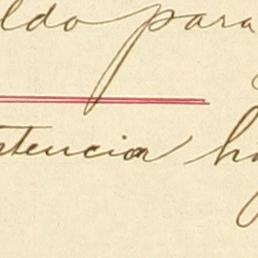 ldo para
stencion ha